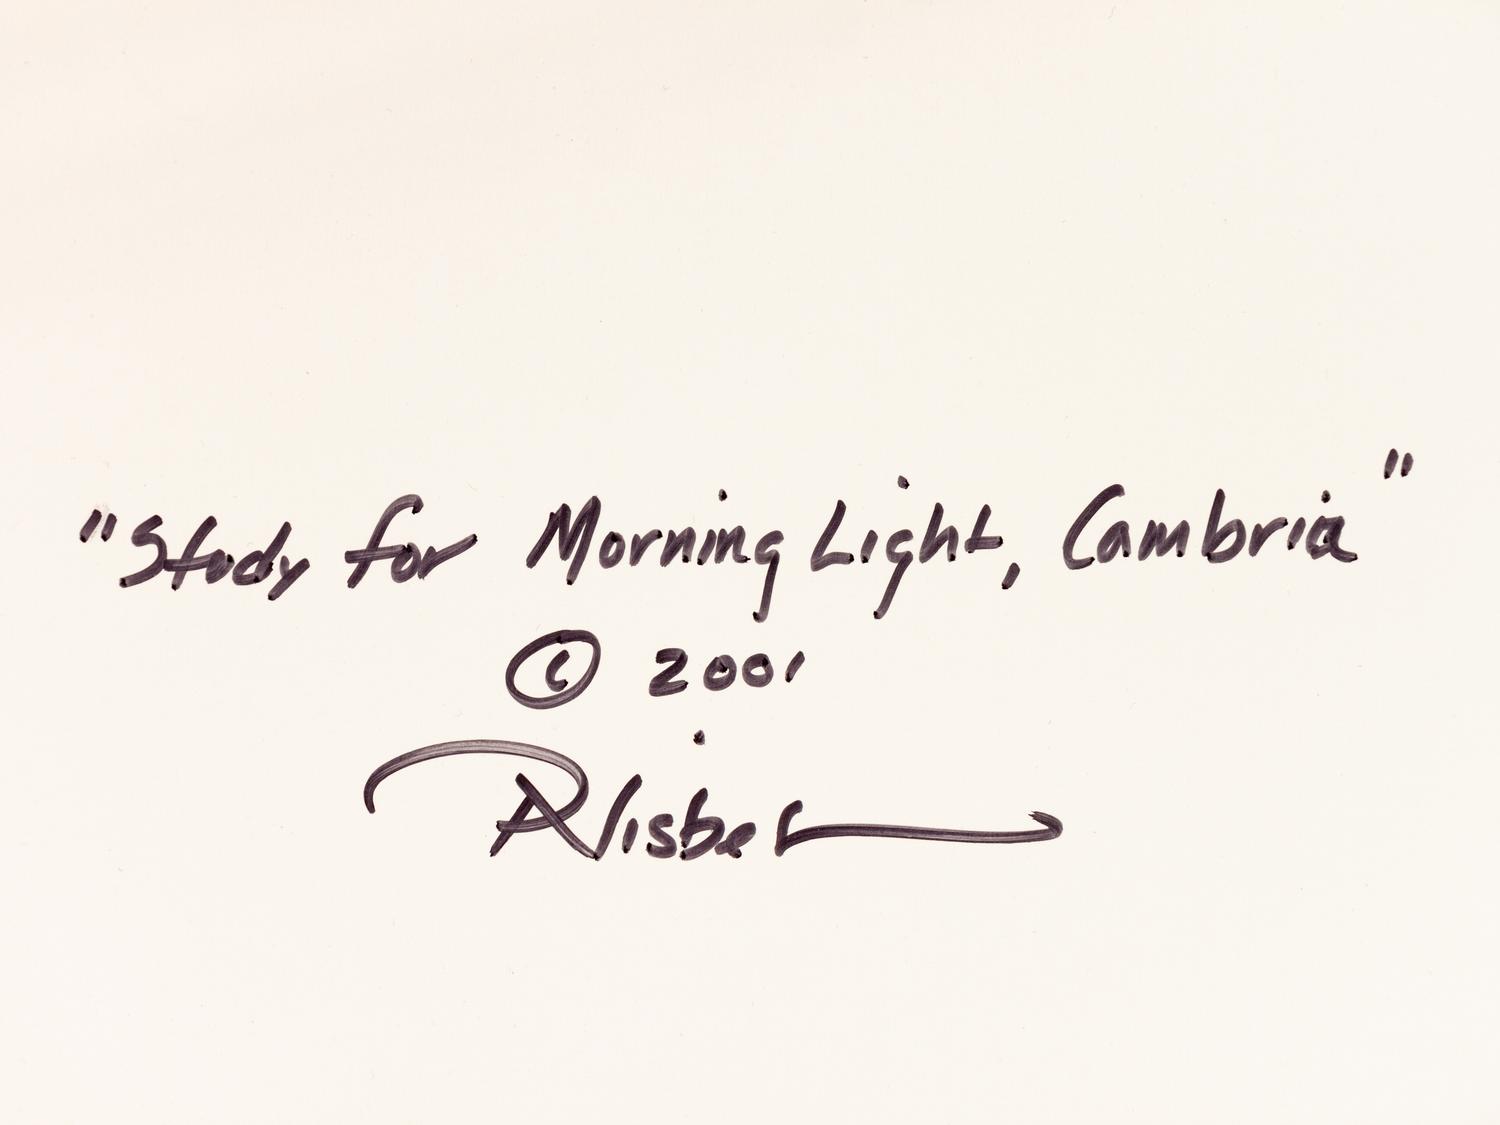 "Study for Morning Light, Cambria"
© 2001
P Nisbet